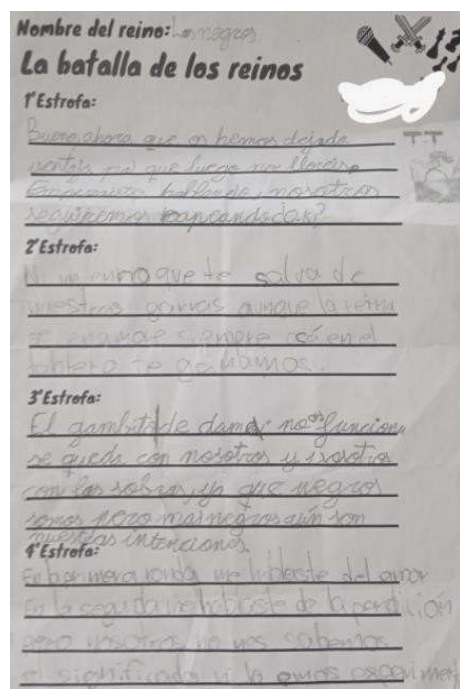 Nombre del reino: Los negros
La batalla de los reinos
1ª Estrofa:
Bueno, ahora que os hemos dejado
que luego no lloréis
T.T
hablando, nosotros
seguiremos rapeando ok?
2ª Estrofa:
Ni un enroque te salva de
nuestras garras aunque la reina
se enamore siempre acá en el
tablero te ganamos.
3ª Estrofa:
El gambito de dama no os funciona
se queda con nosotros y vosotros
con las sobras, ya que negros
somos pero mas negros aún son
nuestras intenciones.
4ª Estrofa:
En la primera ronda me hablaste del amor
En la segunda me hablaste de la perdición
pero nosotros no nos sabemos
el significado ni lo